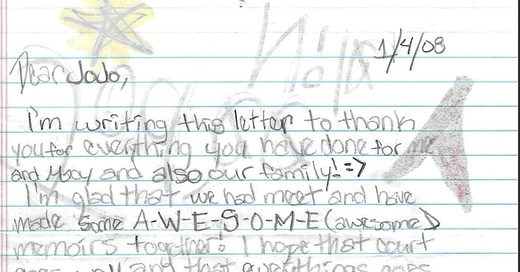 1/4/08
Dear JoJo,
I'm writing this letter to thank
you for everything you have done for me
and Macy and also our family! =>
I'm glad that we had meet and have
made some A-W-E-S-O-M-E (awesome)
memoirs together! I hope that court
goes well and that everythings goes